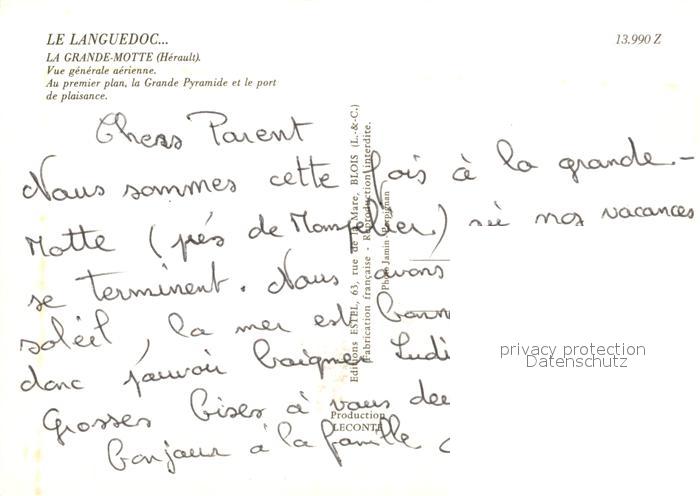 LE LANGUEDOC...
13.990 Z
LA GRANDE-MOTTE (Hérault).
Vue générale aérienne.
Au premier plan, la Grande Pyramide et le port
de plaisance.
Chers Parent
Nous sommes cette fois à la grande-
Motte (prés de Montpellier) où nos vacances
se terminent. Nous avons
soleil, la mer est bonn
donc pouvoir baigner Ludi
Grosses bises à vous deu
bonjour à la famille
Editions ESTEL, 63, rue de la Mare, BLOIS (L.-&-C.)
Fabrication française - Reproduction interdite.
Photo Jamin Perpignan
Production
LECONTE
privacy protection
Datenschutz